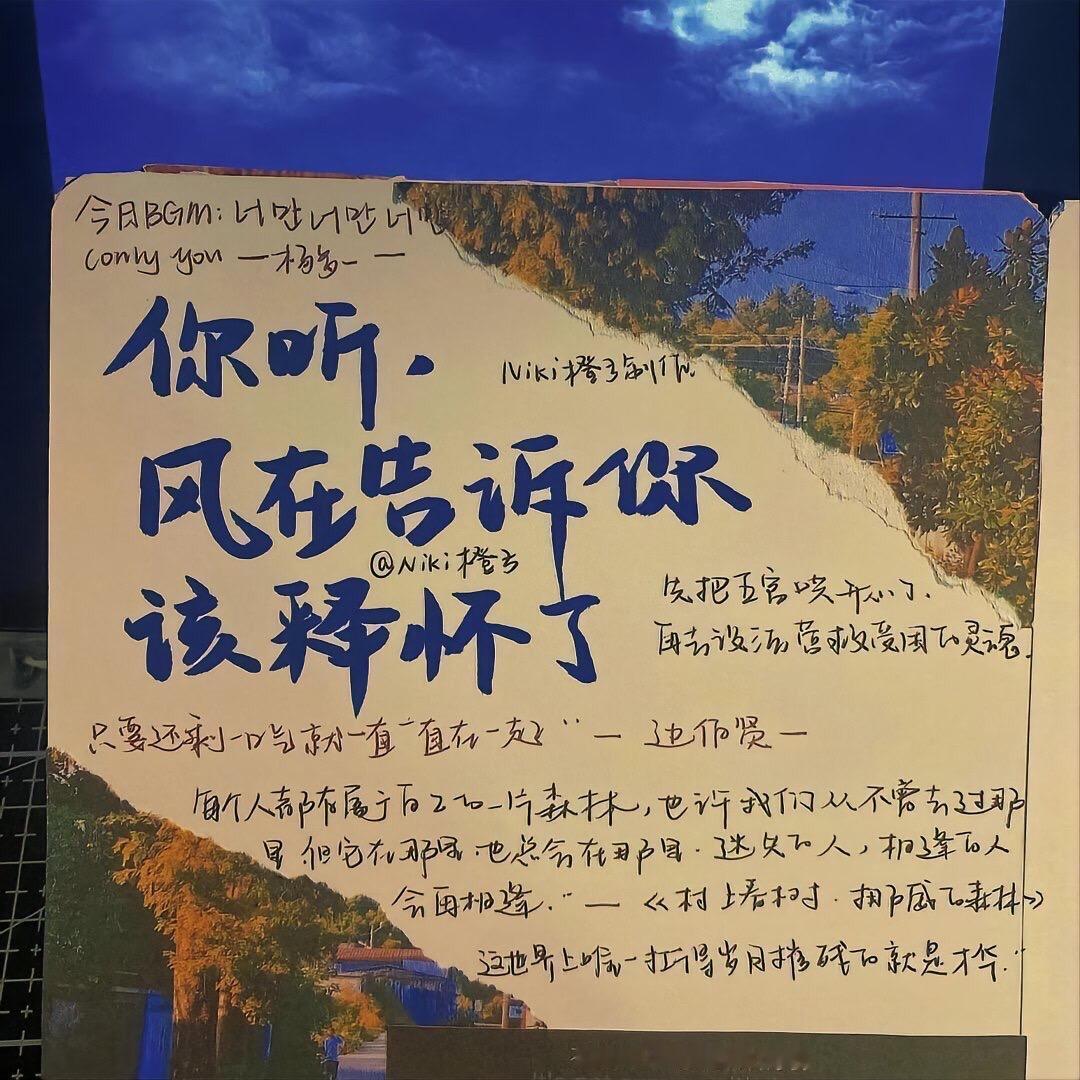 今日BGM:너만너만너만
(only you — 杨多一 —
你听,
Niki橙子制作
风在告诉你
@Niki橙子
该释怀了
先把五官哄开心了.
再去设法营救受困的灵魂.
只要还剩一口气就一直一直在一起" — 边伯贤 —
每个人都有属于自己的一片森林,也许我们从不曾去过那
里 但它在那里.也总会在那里.迷失的人,相逢的人
会再相逢." — 《村上春树.挪威的森林》
这世界上唯一扛得岁月摧残的就是才华."